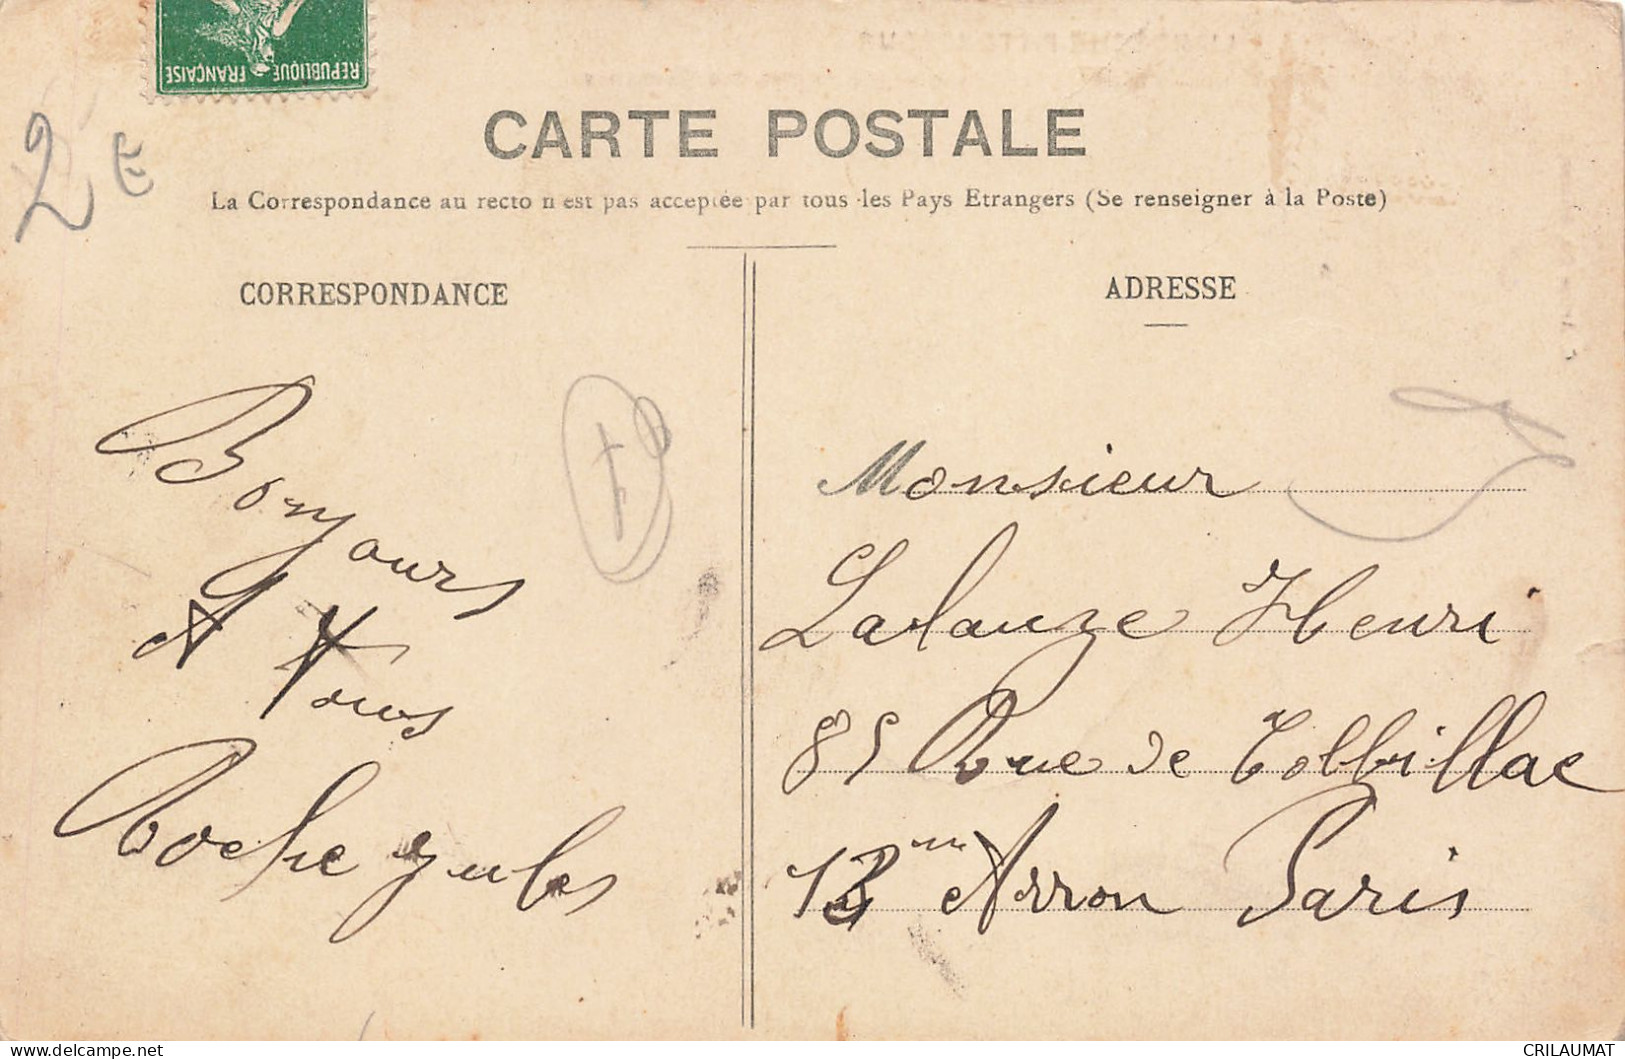 REPUBLIQUE FRANÇAISE
2 E
CARTE POSTALE
La Correspondance au recto n'est pas acceptée par tous les Pays Etrangers (Se renseigner à la Poste)
CORRESPONDANCE
Bonjours
A Tous
Roche Jules
ADRESSE
Monsieur
Lalauze Henri
85 Rue de Tolbillac
13me Arron Paris
CRILAUMAT